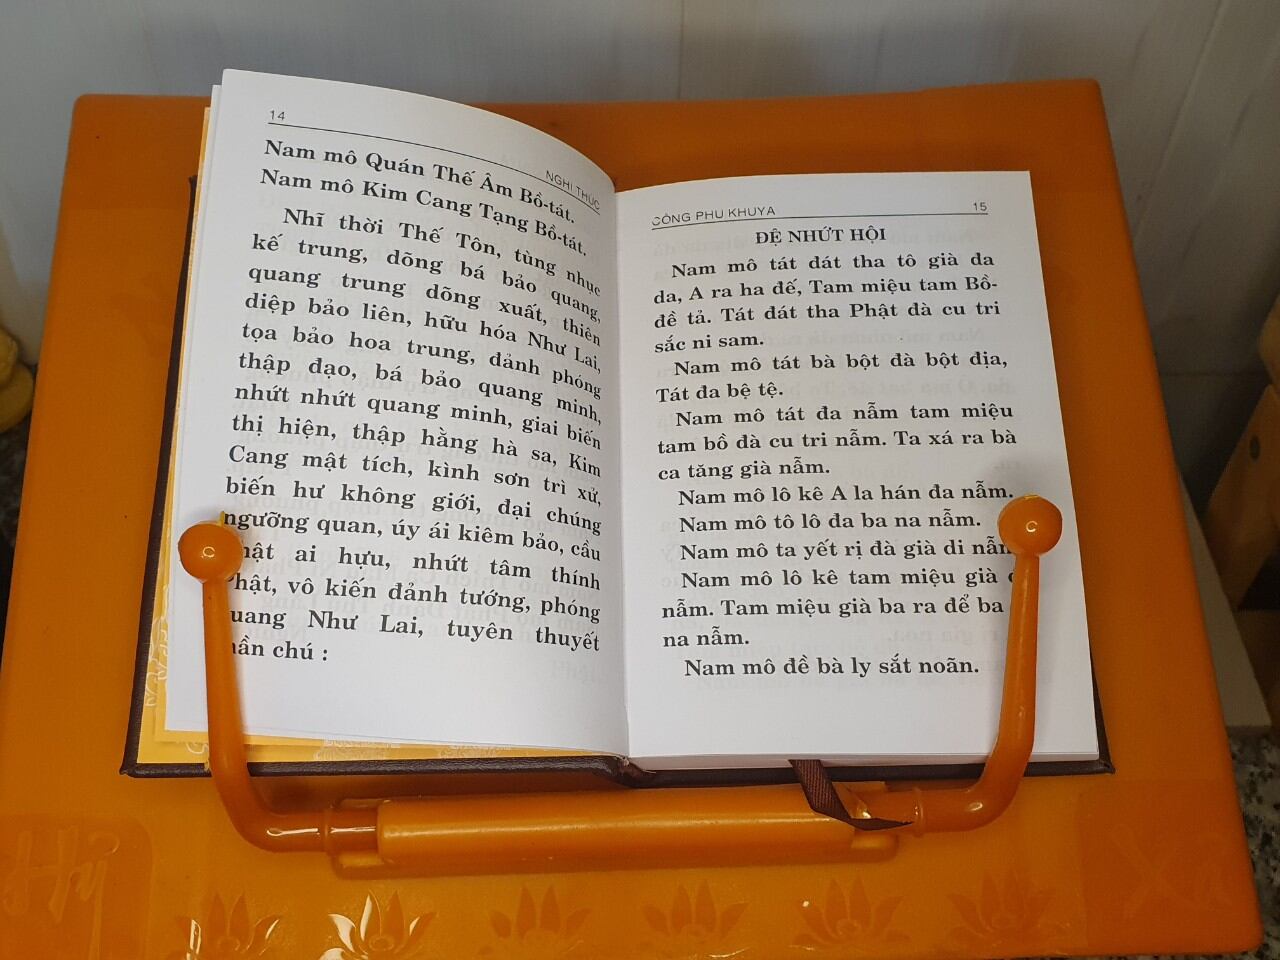 14
NGHI THỨC
Nam mô Quán Thế Âm Bồ-tát.
Nam mô Kim Cang Tạng Bồ-tát.
Nhĩ thời Thế Tôn, tùng nhục
kế trung, dõng bá bảo quang,
quang trung dõng xuất, thiên
diệp bảo liên, hữu hóa Như Lai,
tọa bảo hoa trung, đảnh phóng
thập đạo, bá bảo quang minh,
nhứt nhứt quang minh, giai biến
thị hiện, thập hằng hà sa, Kim
Cang mật tích, kình sơn trì xử,
biến hư không giới, đại chúng
ngưỡng quan, úy ái kiêm bảo, cầu
ai hựu, nhứt tâm thính
Phật, vô kiến đảnh tướng, phóng
Như Lai, tuyên thuyết
chú :
CÔNG PHU KHUYA
15
ĐỆ NHỨT HỘI
Nam mô tát dát tha tô già da
da, A ra ha đế, Tam miệu tam Bồ-
đề tả. Tát dát tha Phật dà cu tri
sắc ni sam.
Nam mô tát bà bột dà bột địa,
Tát đa bệ tệ.
Nam mô tát đa nẫm tam miệu
tam bồ dà cu tri nẫm. Ta xá ra bà
ca tăng già nẫm.
Nam mô lô kê A la hán đa nẫm.
Nam mô tô lô đa ba na nẫm.
Nam mô ta yết rị đà già di
Nam mô lô kê tam miệu già
nẫm. Tam miệu già ba ra để ba
na nẫm.
Nam mô đề bà ly sắt noãn.